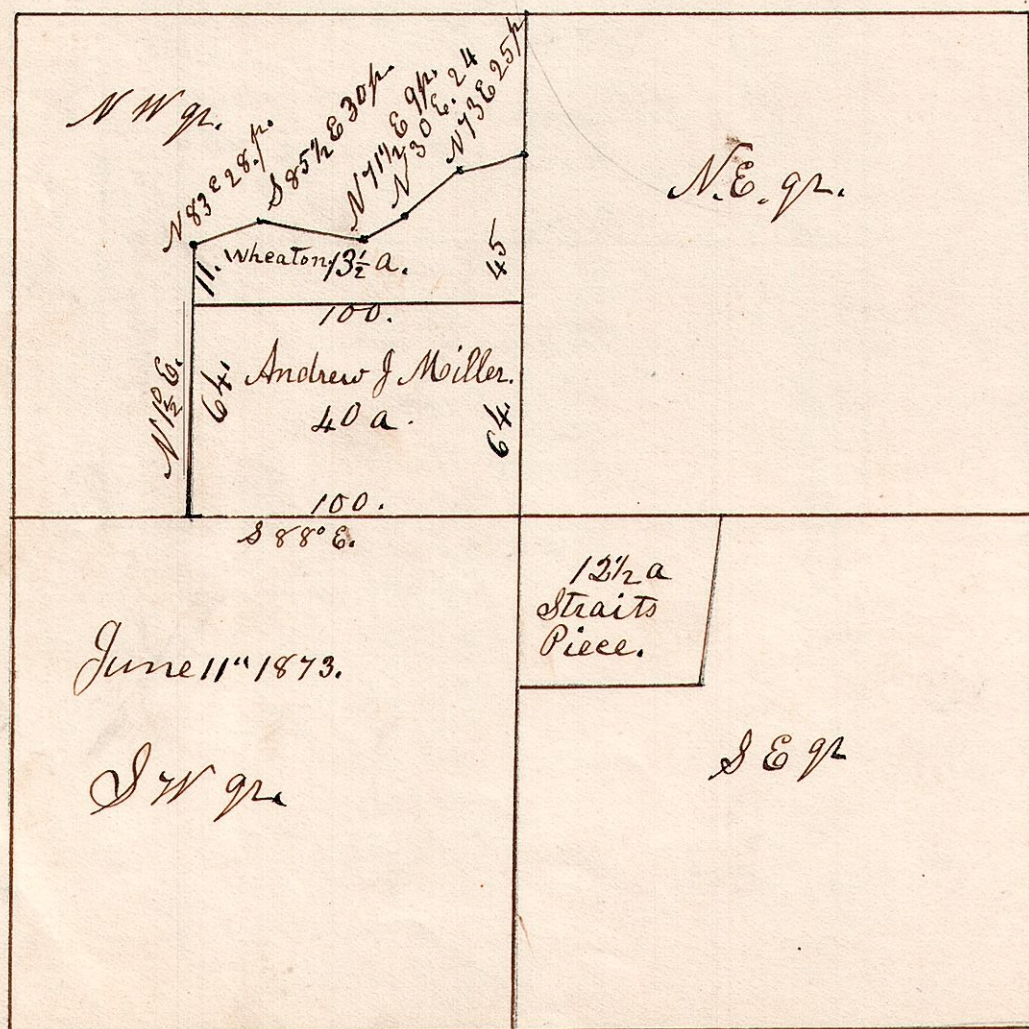 N W qr.
N 83 E 28 p.
S 85 1/2 E 30 p.
N 71 1/2 E 9 p.
N 30 E. 24
N 73 E 25 p
N.E. qr.
11.
Wheaton 13 1/2 a.
45
100.
N 1/2° E.
64.
Andrew J Miller.
40 a.
64.
100.
S 88° E.
12 1/2 a
Straits
Piece.
June 11" 1873.
S W qr.
S E qr